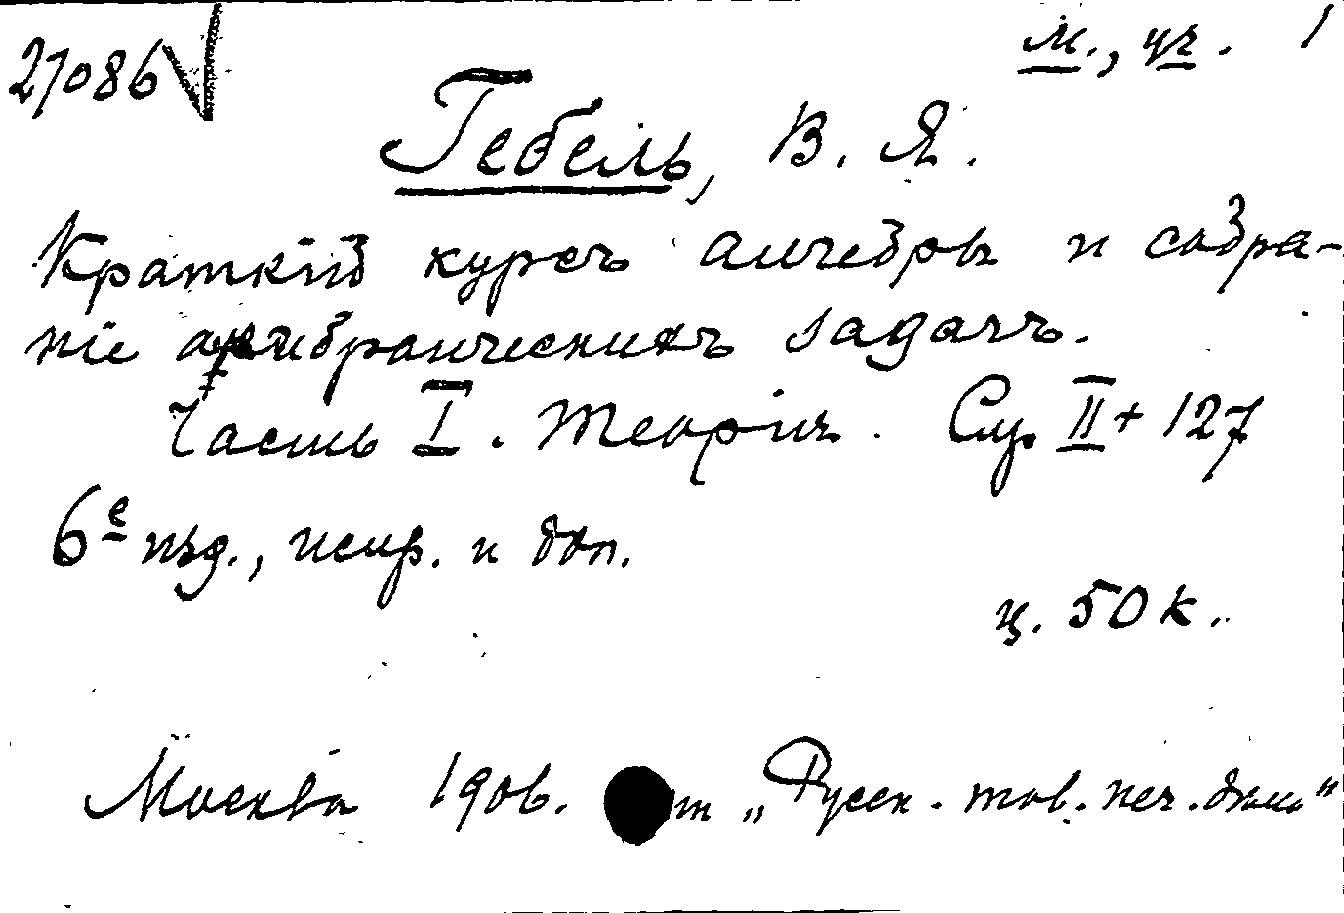 27086 м., уч. 1
Гебель, В. Я.
Краткій курсъ алгебры и собра-
ніе алгебраическихъ задачъ.
Часть I. Теорія. Стр. II + 127
6е изд., испр. и доп.
ц. 50 к.
Москва 1906. „Русск. тов. печ. дѣла"